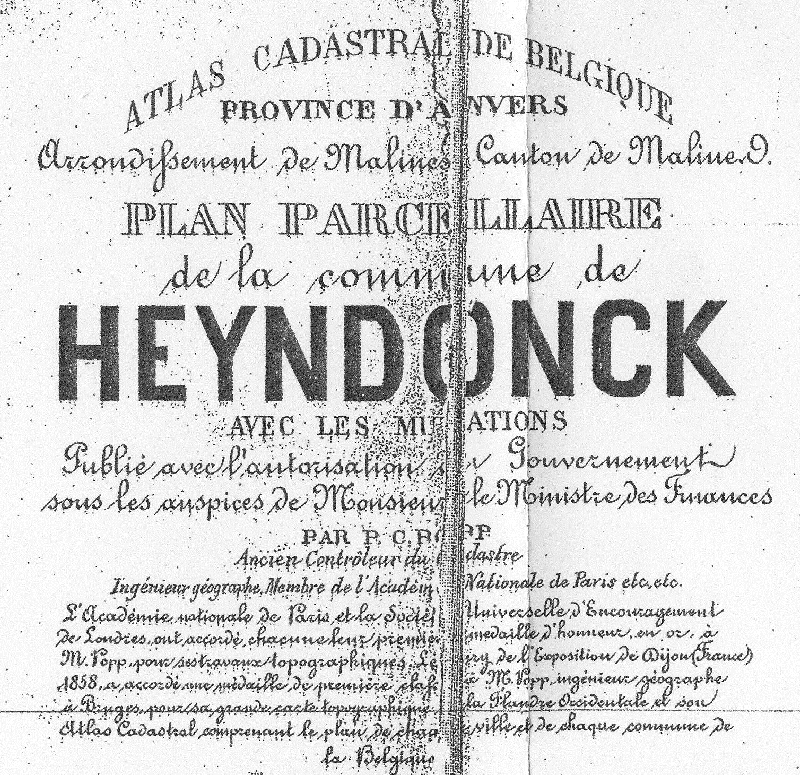 ATLAS CADASTRAL DE BELGIQUE
PROVINCE D'ANVERS
Arrondissement de Malines Canton de Malines.
PLAN PARCELLAIRE
de la commune de
HEYNDONCK
AVEC LES MUTATIONS
Publié avec l'autorisation du Gouvernement
sous les auspices de Monsieur le Ministre des Finances
PAR P. C. POPP
Ancien Contrôleur du Cadastre
Ingénieur géographe, Membre de l'Académie Nationale de Paris etc, etc.
L'Académie nationale de Paris et la Société Universelle d'Encouragement
de Londres, ont accordé chacune leur première médaille d'honneur, en or, à
M. Popp, pour ses travaux topographiques. Le Jury de l'Exposition de Dijon (France)
1858, a accordé une médaille de première classe à M. Popp, ingénieur géographe
à Bruges, pour sa grande carte topographique de la Flandre Occidentale et son
Atlas Cadastral comprenant le plan de chaque ville et de chaque commune de
la Belgique